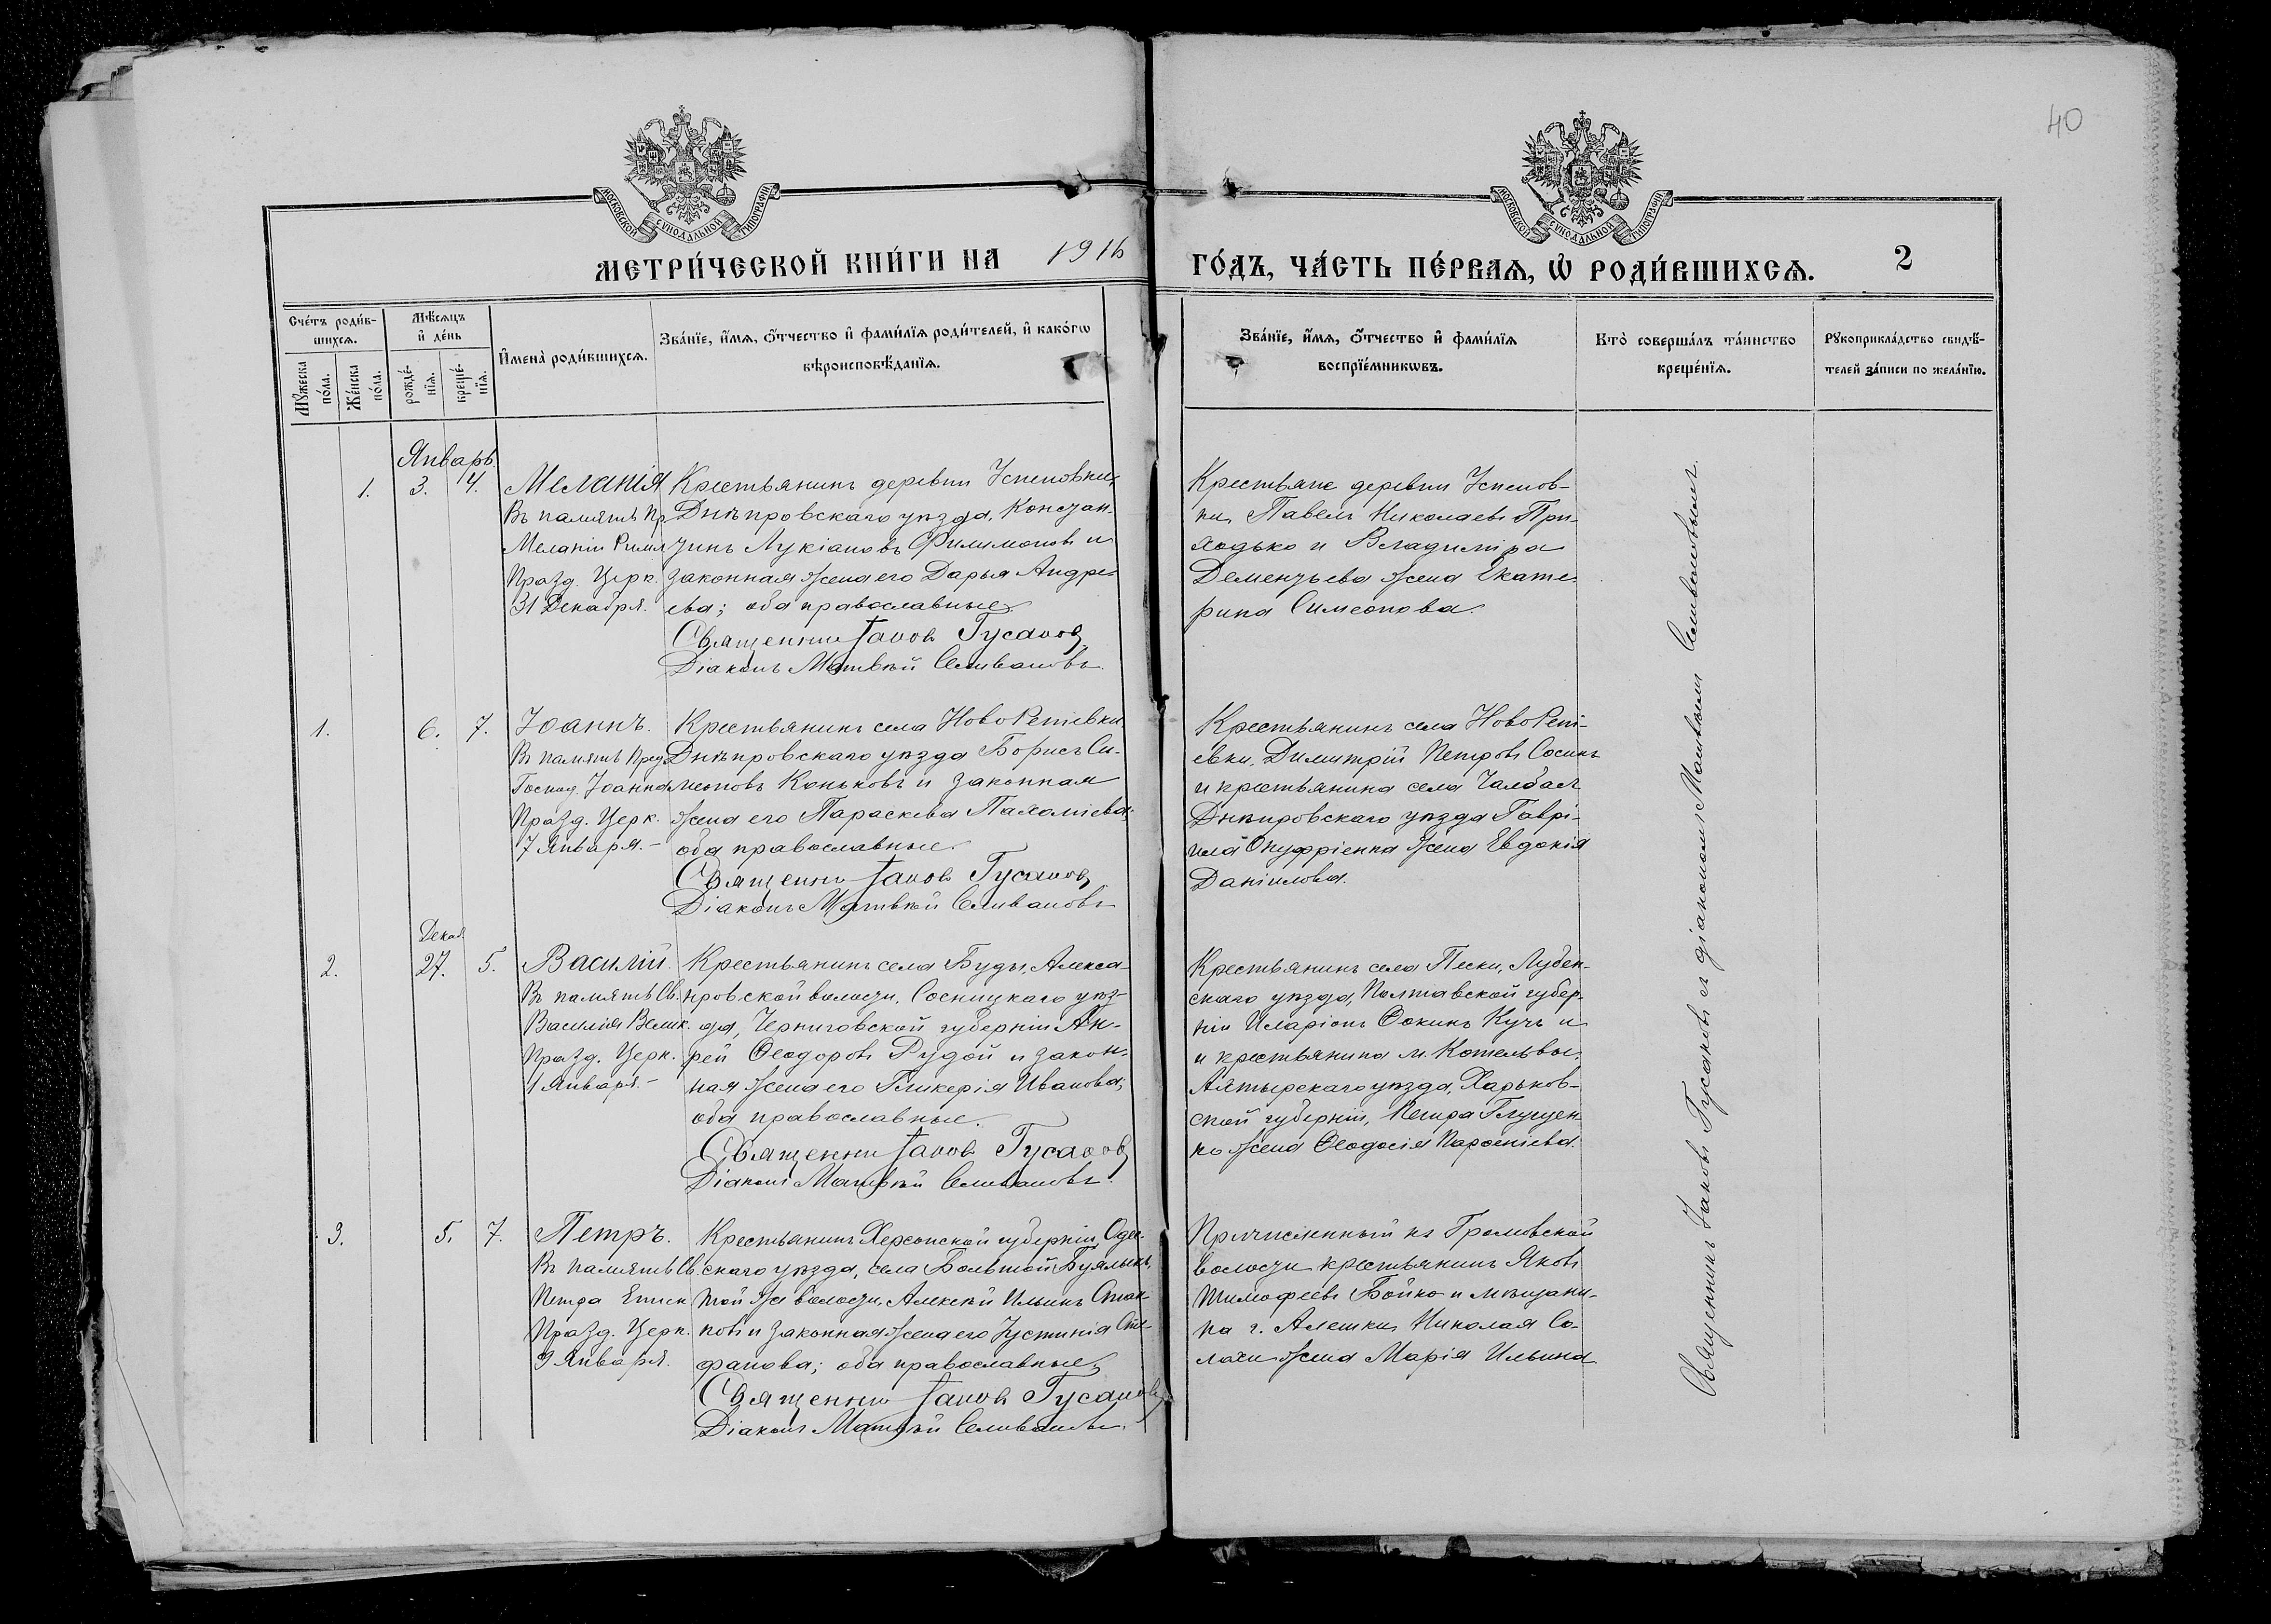 40
МОСКОВСКОЙ СѴНОДАЛЬНОЙ ТИПОГРАФІИ
МОСКОВСКОЙ СѴНОДАЛЬНОЙ ТИПОГРАФІИ
МЕТРИ́ЧЕСКОЙ КНИ́ГИ НА 1916
ГО́ДЪ, ЧА́СТЬ ПЕ́РВАЯ, Ѡ РОДИ́ВШИХСЯ. 2
Сче́тъ роди́в-
шихся.
Мѣ́сяцъ
и де́нь
Му́жеска
по́ла.
Же́нска
по́ла.
рожде́-
нїя.
креще́-
нїя.
Имена̀ роди́вшихся.
Зва́нїе, и́мя, ѻ́тчество и фами́лїя роди́телей, и како́гѡ
вѣроисповѣ́данїя.
Зва́нїе, и́мя, ѻ́тчество и фами́лїя
воспрїе́мникѡвъ.
Кто̀ соверша́лъ та́инство
креще́нїя.
Рꙋкоприкла́дство свидѣ́-
телей за́писи по жела́нїю.
Январь.
1. 3. 4.
Меланія
Въ память Пр.
Меланіи Римл
Празд. Церк.
31 Декабря.
Крестьянинъ деревни Успеновки,
Днѣпровскаго уѣзда, Констан-
тинъ Лукіановъ Филимоновъ и
законная жена его Дарья Андре-
ева; оба православные.
Священник Іаковъ Гусаковъ
Діаконъ Матвѣй Селивановъ.
Крестьяне деревни Успенов-
ки, Павелъ Николаевъ При-
ходько и Владиміра
Дементьева жена Екате-
рина Симеонова.
1. 6. 7.
Іоаннъ.
Въ память Пред.
Господ. Іоанна
Празд. Церк.
7 Января.-
Крестьянинъ села НовоРепіевки
Днѣпровскаго уѣзда Борисъ Си-
меоновъ Коньковъ и законная
жена его Параскева Пахоміева;
оба православные.
Священник Іаковъ Гусаковъ
Діаконъ Матвѣй Селивановъ
Крестьянинъ села НовоРепі-
евки, Димитрій Петровъ Сосинъ
и крестьянина села Чалбасъ
Днѣпровскаго уѣзда Гаврі-
ила Онуфріенка жена Евдокія
Даніилова.
Декаб.
2. 27. 5.
Василій.
Въ память Св.
Василія Велик.
Празд. Церк.
1 Января.-
Крестьянинъ села Буды, Алекса-
дровской волости, Сосницкаго уѣз-
да, Черниговской губерніи Ан-
рей Ѳеодоровъ Рудой и закон-
ная жена его Гликерія Иванова;
оба православные.
Священник Іаковъ Гусаковъ
Діаконъ Матвѣй Селивановъ.
Крестьянинъ села Пески, Лубен-
скаго уѣзда, Полтавской губер-
ніи Иларіонъ Ѳокинъ Кучъ и
и крестьянина м. Котельвы,
Ахтырскаго уѣзда, Харьков-
ской губерніи, Петра Глущен-
ко жена Ѳеодосія Парѳеніева.
3. 5. 7.
Петръ.
Въ память Св.
Петра Еписк
Празд. Церк.
9 Января.
Крестьянинъ Херсонской губерніи, Одес-
скаго уѣзда, села Большой Буялыкъ,
той же волости, Алексѣй Ильинъ Стан-
ковъ и законная жена его Іустинія Сте-
фанова; оба православные,
Священник Іаковъ Гусаковъ
Діаконъ Матвѣй Селивановъ.
Причисленный къ Громовской
волости крестьянинъ Яковъ
Тимофеевъ Бойко и мѣщани-
на г. Алешки, Николая Со-
лохи жена Марія Ильина
Священникъ Іаковъ Гусаковъ съ діакономъ Матвѣемъ Селивановымъ.